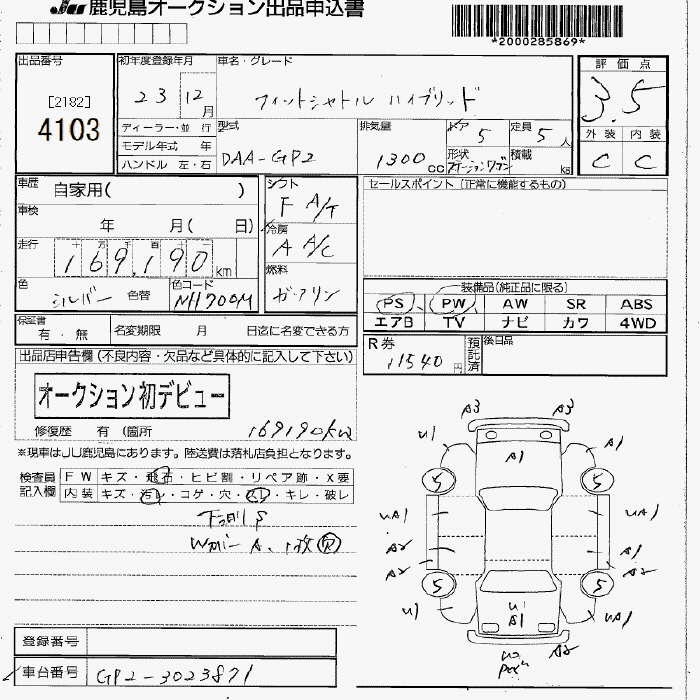 JU 鹿児島オークション出品申込書
*2000285869*
出品番号
[2182]
4103
初年度登録年月
23 12月
車名・グレード
フィットシャトル ハイブリッド
評価点
3.5
外装 内装
C C
ディーラー・並行
モデル年式 年
ハンドル 左・右
型式
DAA-GP2
排気量
1300cc
ドア 5
形状 ステーションワゴン
定員 5人
積載 kg
車歴 自家用( )
車検 年 月( 日)
走行 十 万 千 百 十
169,190km
色 シルバー 色替
色コード NH700M
シフト F A/T
冷房 A A/C
燃料 ガソリン
セールスポイント(正常に機能するもの)
装備品(純正品に限る)
PS PW AW SR ABS
エアB TV ナビ カワ 4WD
保証書 有・無
名変期限 月 日迄に名変できる方
R券 11540円
預託済
後日品
出品店申告欄(不良内容・欠品など具体的に記入して下さい)
オークション初デビュー
修復歴 有(箇所
169190km
※現車はJU鹿児島にあります。陸送費は落札店負担となります。
検査員記入欄
FW キズ・飛石・ヒビ割・リペア跡・X要
内装 キズ・汚レ・コゲ・穴・スレ・キレ・破レ
下廻りS
Wカバー A、1枚欠
A3 A3
U1 A1 A1
5 5
UA1 UA1
A2 A1
A2 A2
5 5
U1 U1 A1 UA1
U2 A2
登録番号
車台番号 GP2-3023871